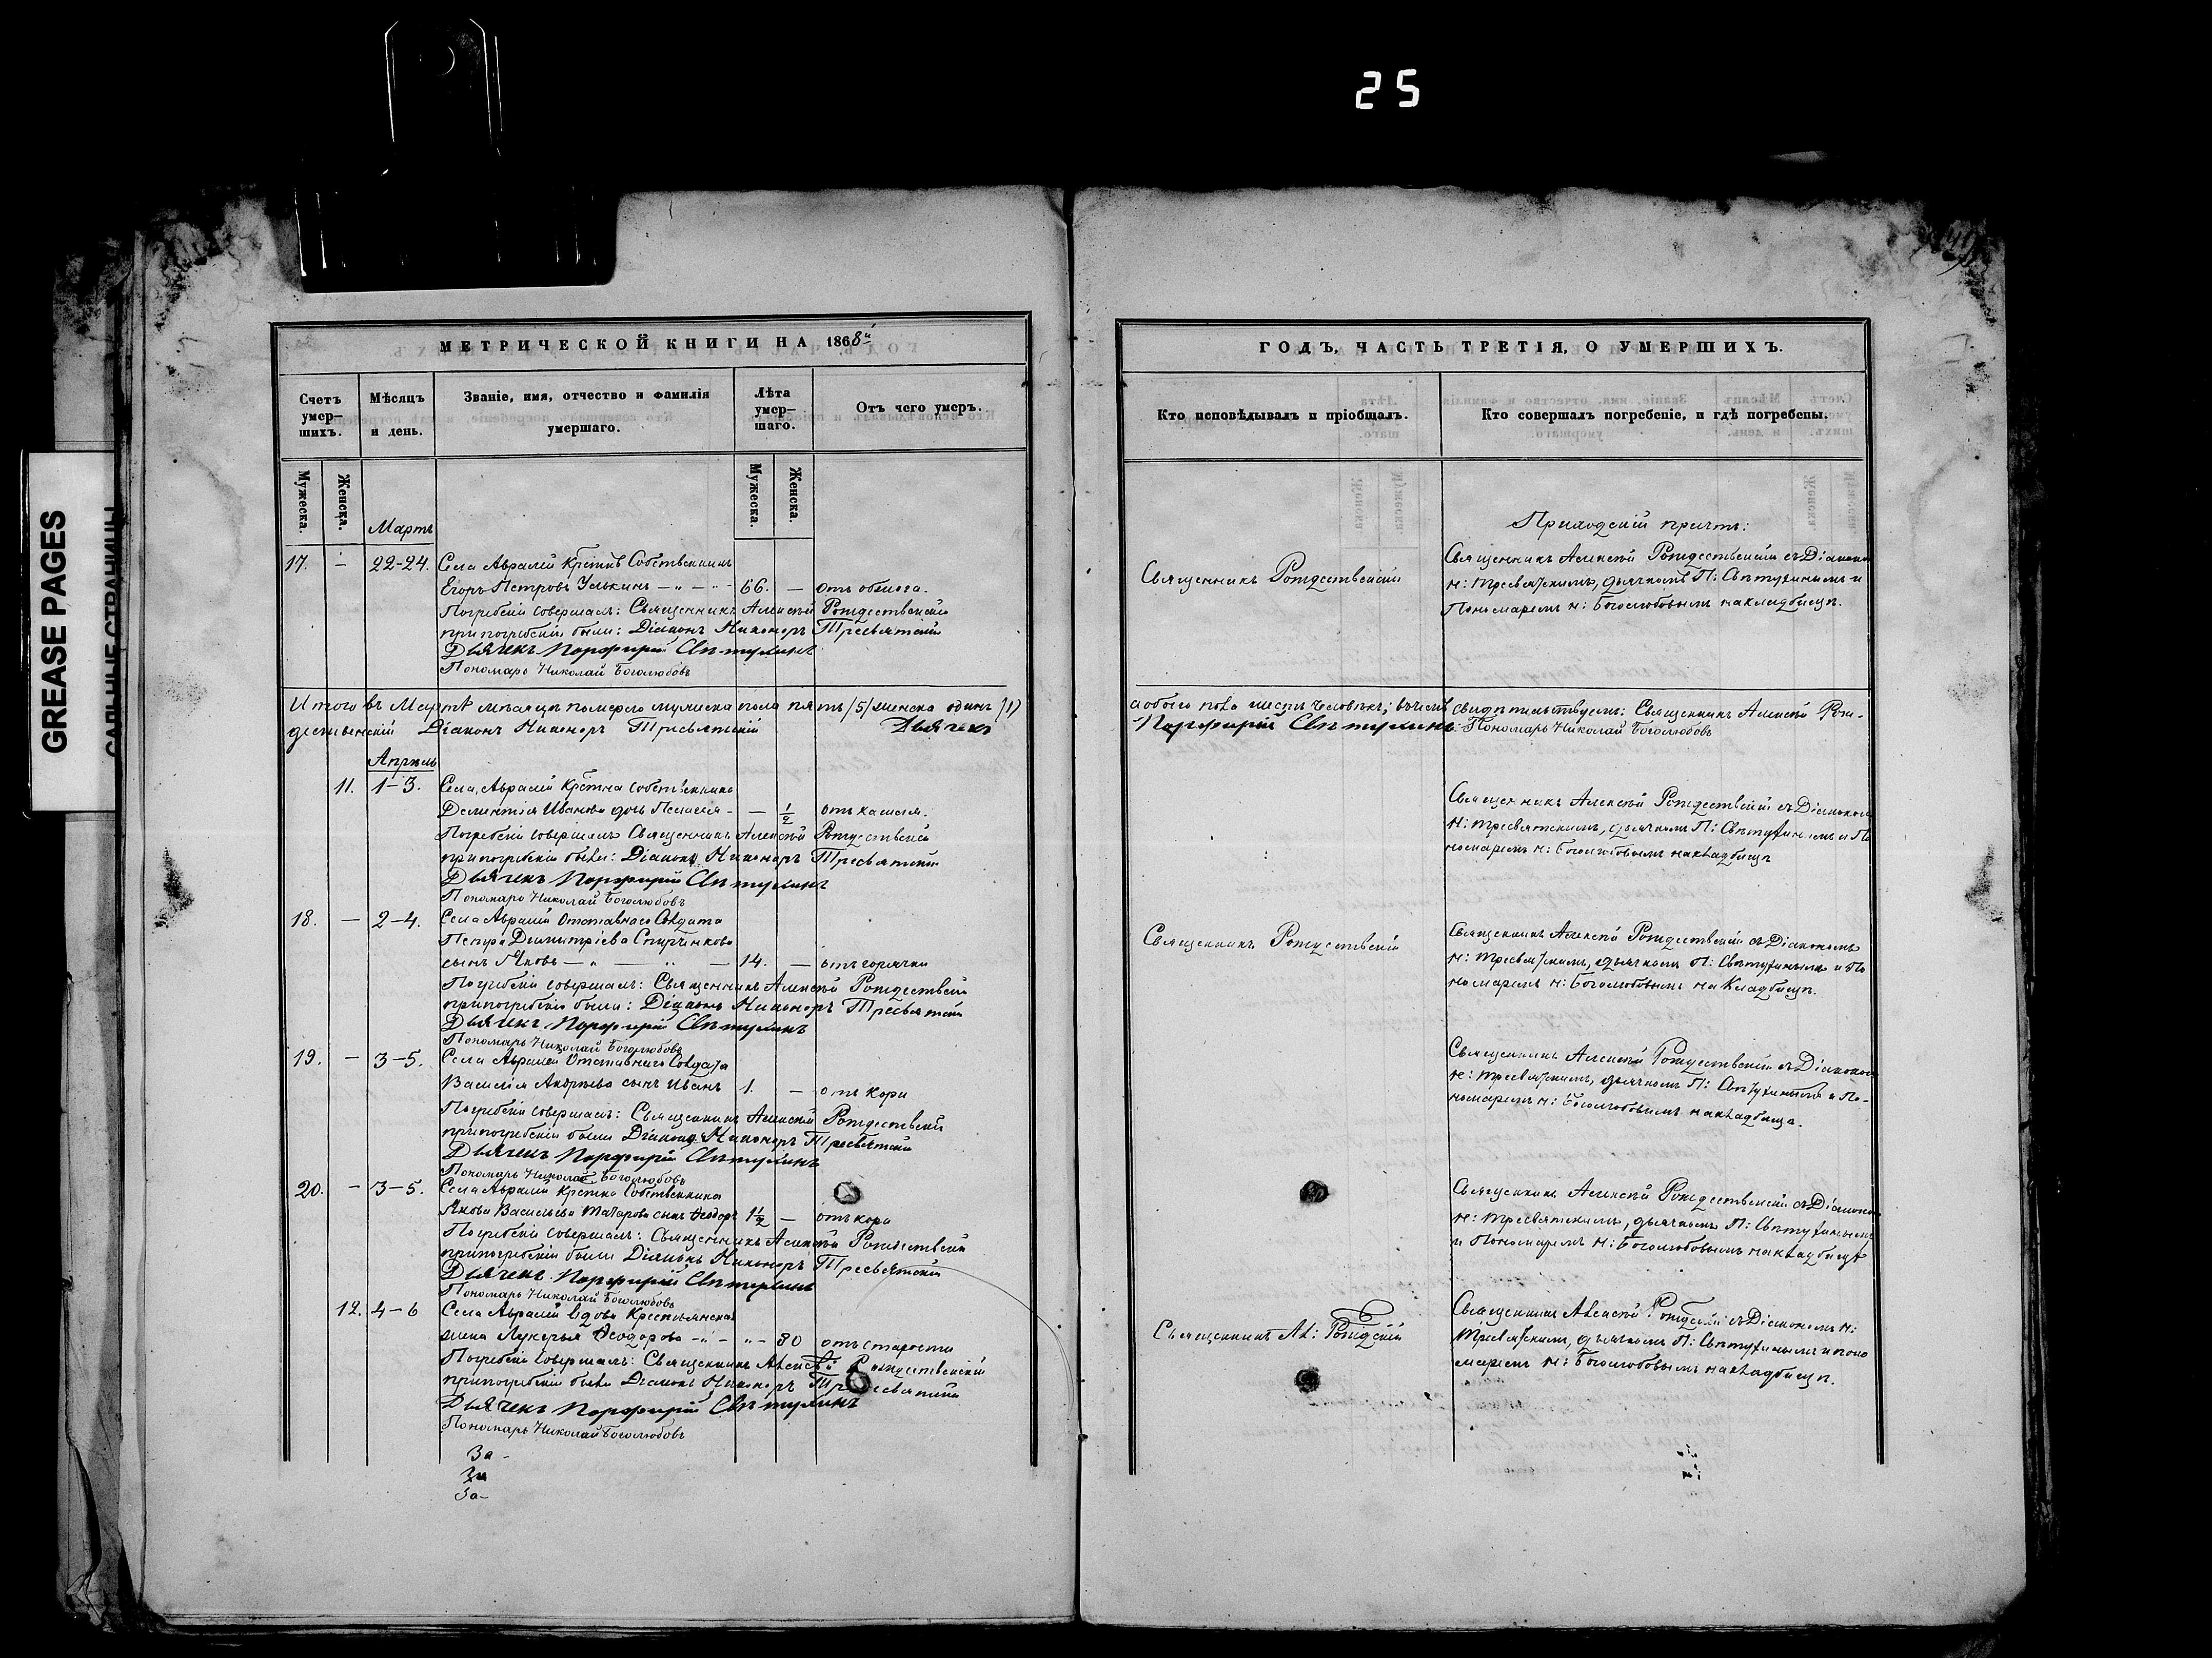 25
GREASE PAGES
МЕТРИЧЕСКОЙ КНИГИ НА 1868й
Счетъ умер-
шихъ.
Мѣсяцъ
и день.
Званіе, имя, отчество и фамилія
умершаго.
Лѣта
умер-
шаго.
Отъ чего умеръ.
Мужеска.
Женска.
Мужеска.
Женска.
Мартъ
17. — 22-24. Села Авралей Крестнъ Собственникъ
Егоръ Петровъ 66. —
Погребеніе совершалъ: Священникъ Алексѣй Рождественскій
при погребеніи были: Діаконъ Никаноръ Тресвятскій
Дьячекъ Порфирій Свѣтухинъ
Пономарь Николай Боголюбовъ
Итого въ Мартѣ мѣсяцѣ померло мужеска пола пять /5/ женска одинъ /1/
дественскій Діаконъ Никаноръ Тресвятскій Дьячекъ
Апрѣль
11. 1-3. Села Авралей Крестна собственника
Дементія Иванова дочь Пелагея - — 1/2 отъ кашля.
Погребеніе совершалъ Священникъ Алексѣй Рождественскій
при погребеніи были: Діаконъ Никаноръ Тресвятскій
Дьячекъ Порфирій Свѣтухинъ
Пономарь Николай Боголюбовъ
18. — 2-4. Села Авралей Отставнаго Солдата
Петра Димитріева
сынъ Яковъ — „ — 14. — отъ горячки
Погребеніе совершалъ: Священникъ Алексѣй Рождественскій
при погребеніи были: Діаконъ Никаноръ Тресвятскій
Дьячекъ Порфирій Свѣтухинъ
Пономарь Николай Боголюбовъ
19. — 3-5. Села Авралей Отставнаго Солдата
Василія Андреева сынъ Иванъ 1. — отъ кори
Погребеніе совершалъ: Священникъ Алексѣй Рождественскій
при погребеніи были Діаконъ Никаноръ Тресвятскій
Дьячекъ Порфирій Свѣтухинъ
Пономарь Николай Боголюбовъ
20. — 3-5. Села Авралей Крестна Собственника
Якова Васильева Татарова сынъ Ѳеодоръ 1 1/2 — отъ кори
Погребеніе совершалъ: Священникъ Алексѣй Рождественскій
при погребеніи были Діаконъ Никаноръ Тресвятскій
Дьячекъ Порфирій Свѣтухинъ
Пономарь Николай Боголюбовъ
12. 4-6 Села Авралей вдова Крестьянская
жена Лукерья Ѳеодорова - „ - „ - 80 отъ старости
Погребеніе совершалъ: Священникъ Алексѣй Рождественскій
при погребеніи были Діаконъ Никаноръ Тресвятскій
Дьячекъ Порфирій Свѣтухинъ
Пономарь Николай Боголюбовъ
За-
За
За-
ГОДЪ, ЧАСТЬ ТРЕТІЯ, О УМЕРШИХЪ.
Кто исповѣдывалъ и пріобщалъ.
Кто совершалъ погребеніе, и гдѣ погребены.
Приходскій причтъ:
Священникъ Рождественскій
Священникъ Алексѣй Рождественскій съ Діакономъ
Н: Тресвятскимъ, дьячкомъ П: Свѣтухинымъ и
Пономаремъ Н: Боголюбовымъ на кладбищѣ.
а обоего пола шесть человѣкъ; въ чемъ свидѣтельствуемъ: Священникъ Алексѣй Рож-
Порфирій Свѣтухинъ Пономарь Николай Боголюбовъ
Священникъ Алексѣй Рождественскій съ Діакономъ
Н: Тресвятскимъ, дьячкомъ П: Свѣтухинымъ и По
номаремъ Н: Боголюбовымъ на кладбищѣ
Священникъ Рождественскій
Священникъ Алексѣй Рождественскій съ Діакономъ
Н: Тресвятскимъ, дьячкомъ П: Свѣтухинымъ и По
номаремъ Н: Боголюбовымъ на Кладбищѣ.
Священникъ Алексѣй Рождественскій съ Діакономъ
Н: Тресвятскимъ, дьячкомъ П: Свѣтухинымъ и По-
номаремъ Н: Боголюбовымъ на кладбища.
Священникъ Алексѣй Рождественскій съ Діакономъ
Н: Тресвятскимъ, дьячкомъ П: Свѣтухинымъ
и Пономаремъ Н: Боголюбовымъ на кладбищѣ
Священникъ Ал: Рождскій
Священникъ Алексѣй Рождскій съ Діакономъ Н:
Тресвятскимъ, дьячкомъ П: Свѣтухинымъ и поно
маремъ Н: Боголюбовымъ на кладбищѣ.